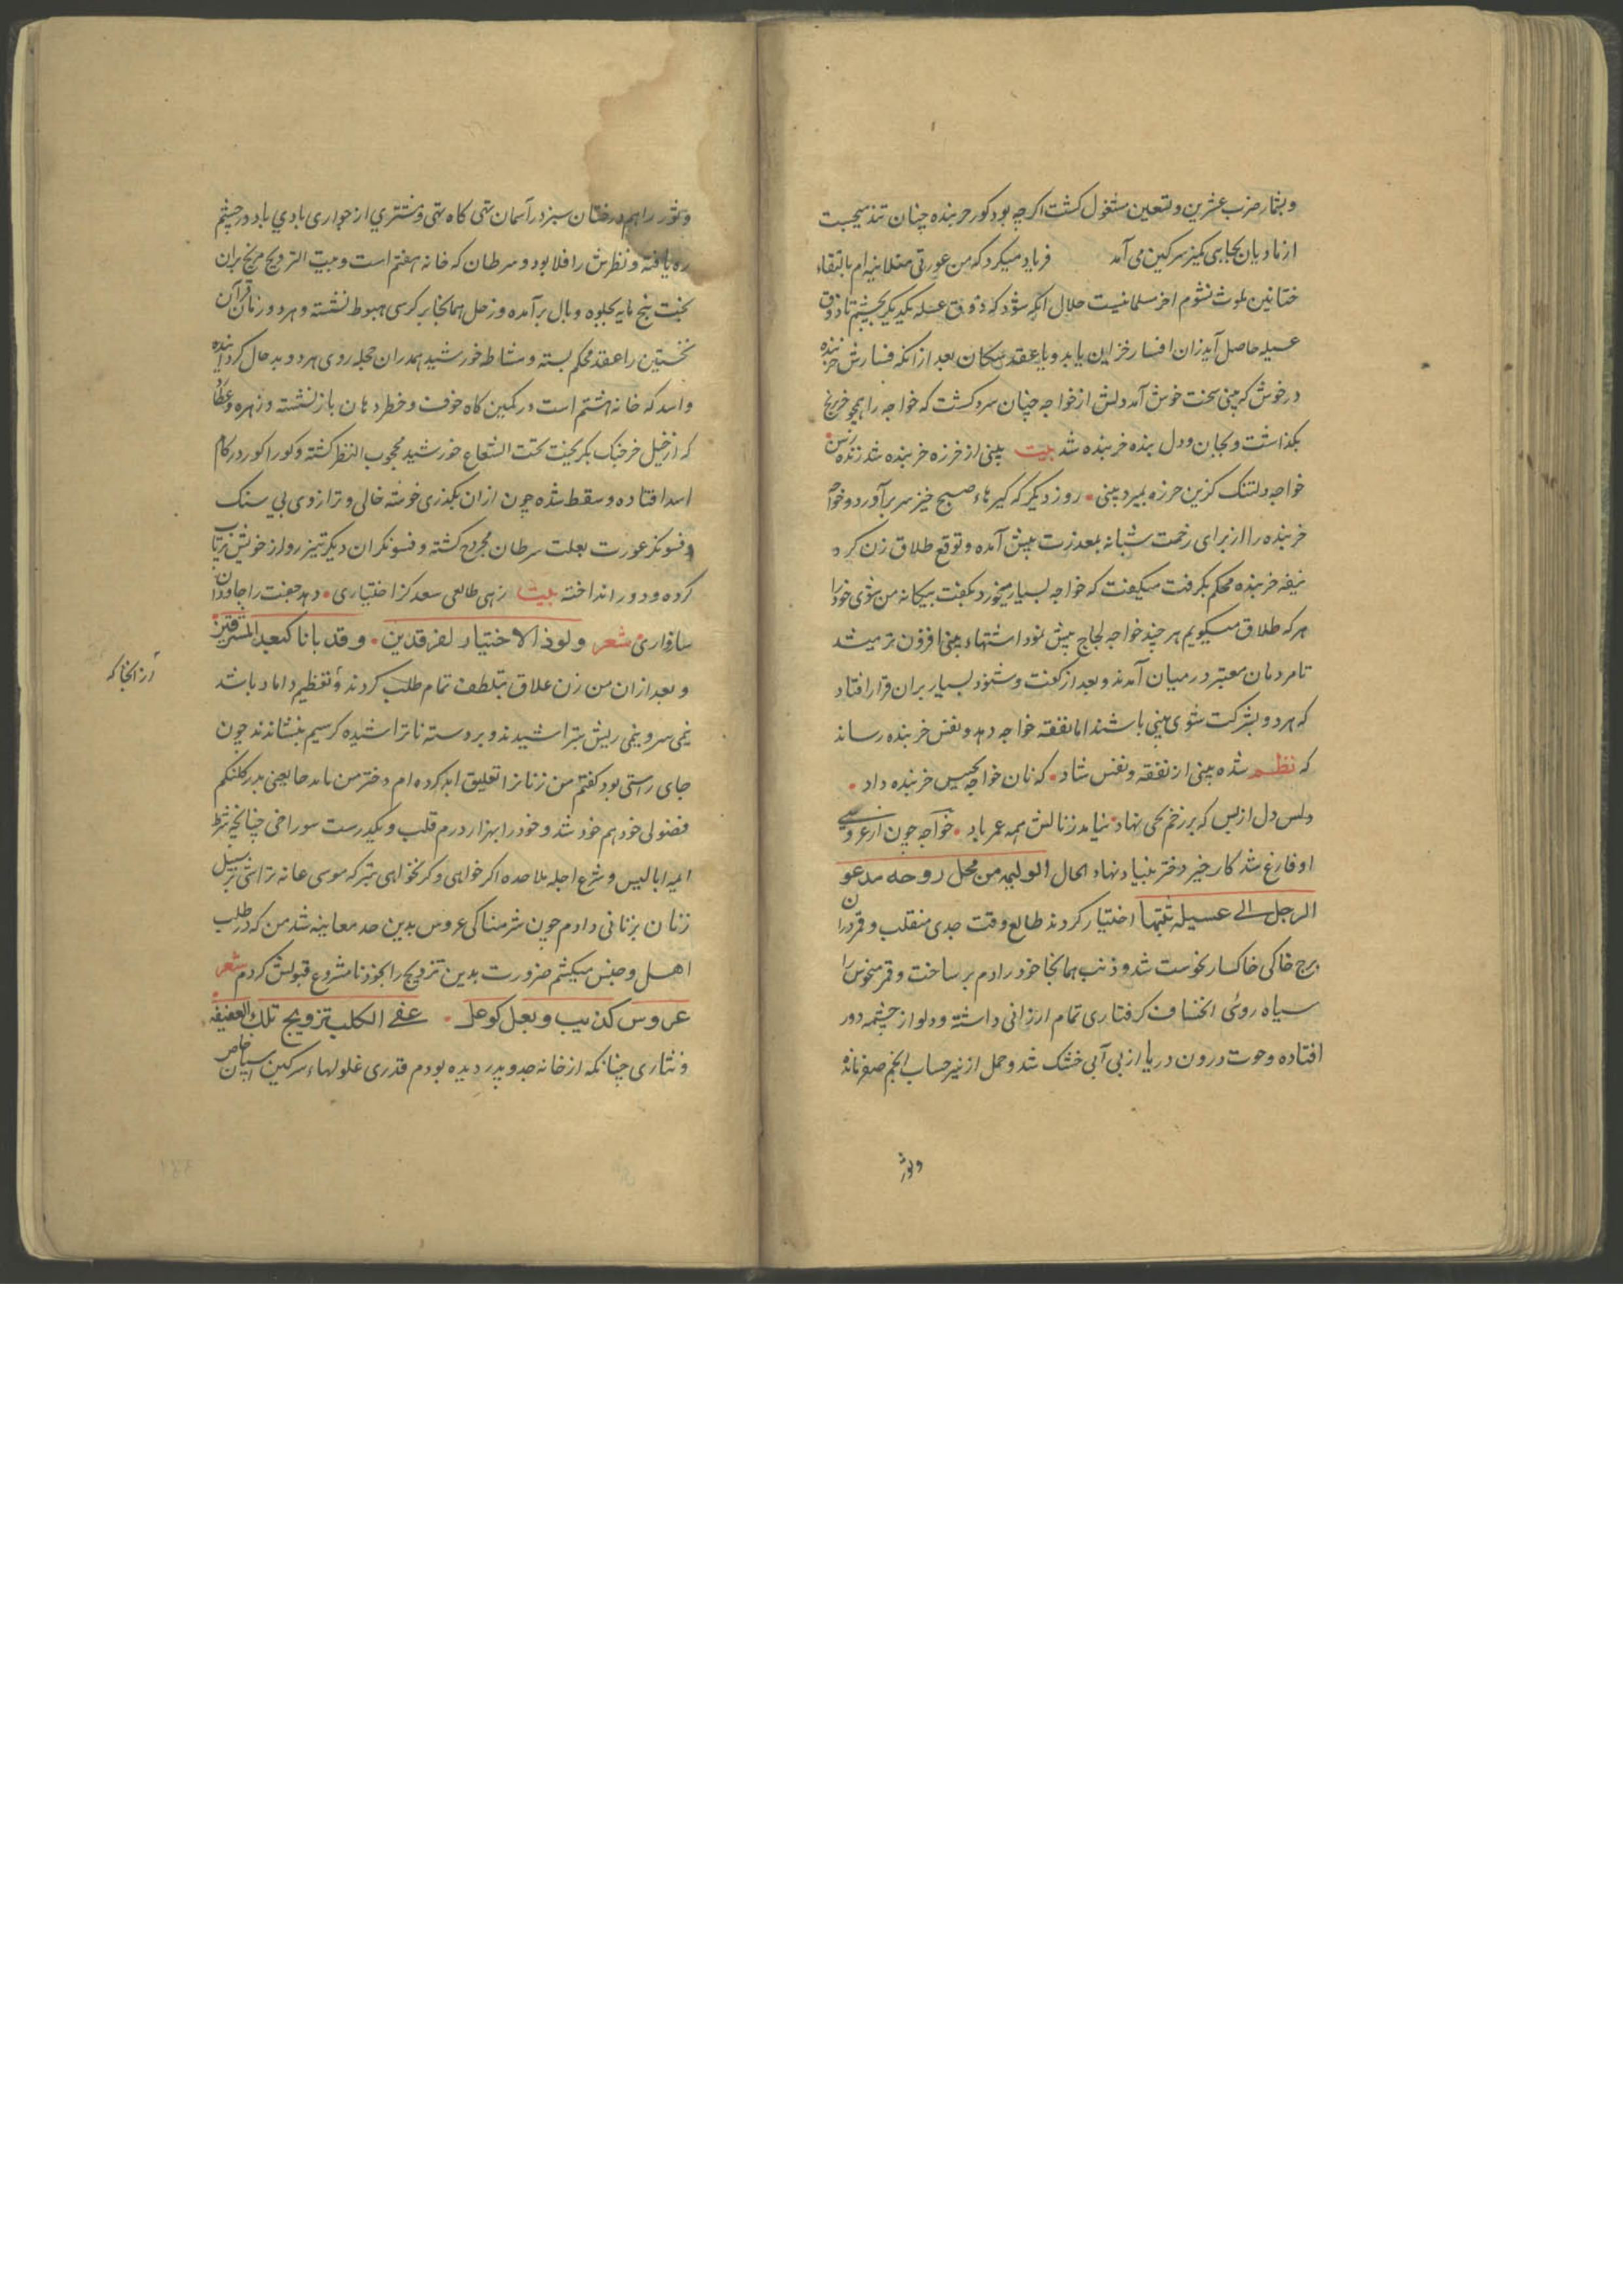 وبشمار ضرب عشرین و تسعین مشغول کشت اکرچه بود کور خربنده چنان تند میجست
از مادیان بجاهی کمیز سرکین می آمد فریاد میکرد که من عورتی ام بالتقاء
ختانین ملوث نشوم آخر مسلمانیست حلال آنکه شود که ذوق عسیله یکدیگر بچشیم تا ذوق
عسیله حاصل آید زان افسار خر این یابد و با عقد بعد از آنکه فسارش خربنده
در خوش که چنی سخت خوش آمد دلش از خواجه چنان سرد کشت که خواجه را همچو خر
بکذاشت و بجان و دل بنده خربنده شد بیت بینی از خرزه خربنده شد زنده زنش
خواجه دلتنک کزین خرزه بمیرد بینی روز دیکر که کیرهاء صبح خیز سر برآورد و خواجه
خربنده را از برای زحمت شبانه بمعذرت پیش آمده و توقع طلاق زن کرد
نیفه خربنده محکم بکرفت میکفت که خواجه بسیار میخورد بکفت بیکانه من شوی خود را
هرکه طلاق میکویم هر چند خواجه لجاج پیش نمود اشتهاء بینی افزون تر میشد
تا مردمان معتبر در میان آمدند و بعد از کفت و شنود بسیار بران قرار افتاد
که هر دو بشرکت شوی بینی باشند اما نفقه خواجه دهد و نفس خربنده رساند
که نظم شده بینی از نفقه و نفس شاد که نان خواجه کیس خربنده داد
ولس دل از بس که بر زخم نهاد بنیامد زنانش همه عمر یاد خواجه چون از عروسی
او فارغ شد کار خیر دختر بنیاد نهاد الحال الولیمه من محل روحه مدعو
الرجل الی عسیلة بنتها اختیار کردند طالع وقت جدی منقلب و قمر در ان
برج خاکی خاکسار نحوست شد و ذنب همانجا خود را دم بر ساخت و قمر منحوس را
سیاه روی انخساف کرفتاری تمام ارزانی داشته و دلو از چشمه دور
افتاده و حوت درون دریا از بی آبی خشک شد و حمل از نیز حساب انجم صفر مانده
وثور
وثور را هم درختان سبز در آسمان تهی کاه تهی و مشتری از جواری بادی باد در چشم
ره یافته و نظرش را فلا بود و سرطان که خانه هفتم است و بیت التزویج مریخ بران
تخت پنج پایه بجلوه وبال برآمده و زحل همانجا بر کرسی هبوط نشسته و هر دو زمان قرآن
نخستین را عقد محکم بسته و مشاط خورشید همدران حجله روی هر دو بد حال کردانیده
و اسد که خانه هشتم است در کمین کاه خوف و خطر دهان باز نشسته و زهره و عطارد
که از خیل خرچنک بکریخت تحت الشعاع خورشید محجوب النظر کشته و کورا کور در کام
اسد افتاده و سقط شده چون از ان بکذری خوشه خالی و ترازوی بی سنک
و فسونکر عورت بعلت سرطان مجروح کشته و فسونکران دیکر تیز رو از خویش پرتاب
کرده و دور انداخته بیت زهی طالعی سعد کز اختیاری دهد جفت را جاودان
سازواری شعر ولوذ الاختیار لفرقدین وقد بانا کبعد المشرقین
و بعد ازان من زن علاق بتلطف تمام طلب کردند و تعظیم داماد باشد
نیمی سر و نیمی ریش بتراشیدند و بر دسته ناتراشیده کرسیم بنشاندند چون
جای راستی بود کفتم من زنانرا تعلیق ابد کرده ام دختر من یعنی پدر کلنکم
فضولی خود هم خود شد و خود را بهزار درم قلب و یکدرست سوراخی چنانچه شرط
ائمه ابالیس و شرع اجله ملاحده اکر خواهی و کر نخواهی تبرکه موسی عانه تراشی بر سبیل
زنان بزنانی دادم چون شرمناکی عروس بدین حد معاینه شد من که در طلب
اهل و جنس میکشتم ضرورت بدین تزویج را بجوز نامشروع قبولش کردم شعر
عروس کذئب وبعل کوعل عفی الکلب تزویج تلک العفیفه
ونثاری چنانکه از خانه جد و پدر دیده بودم قدری غلولهاء سرکین اسپان خاص
از آنجا که